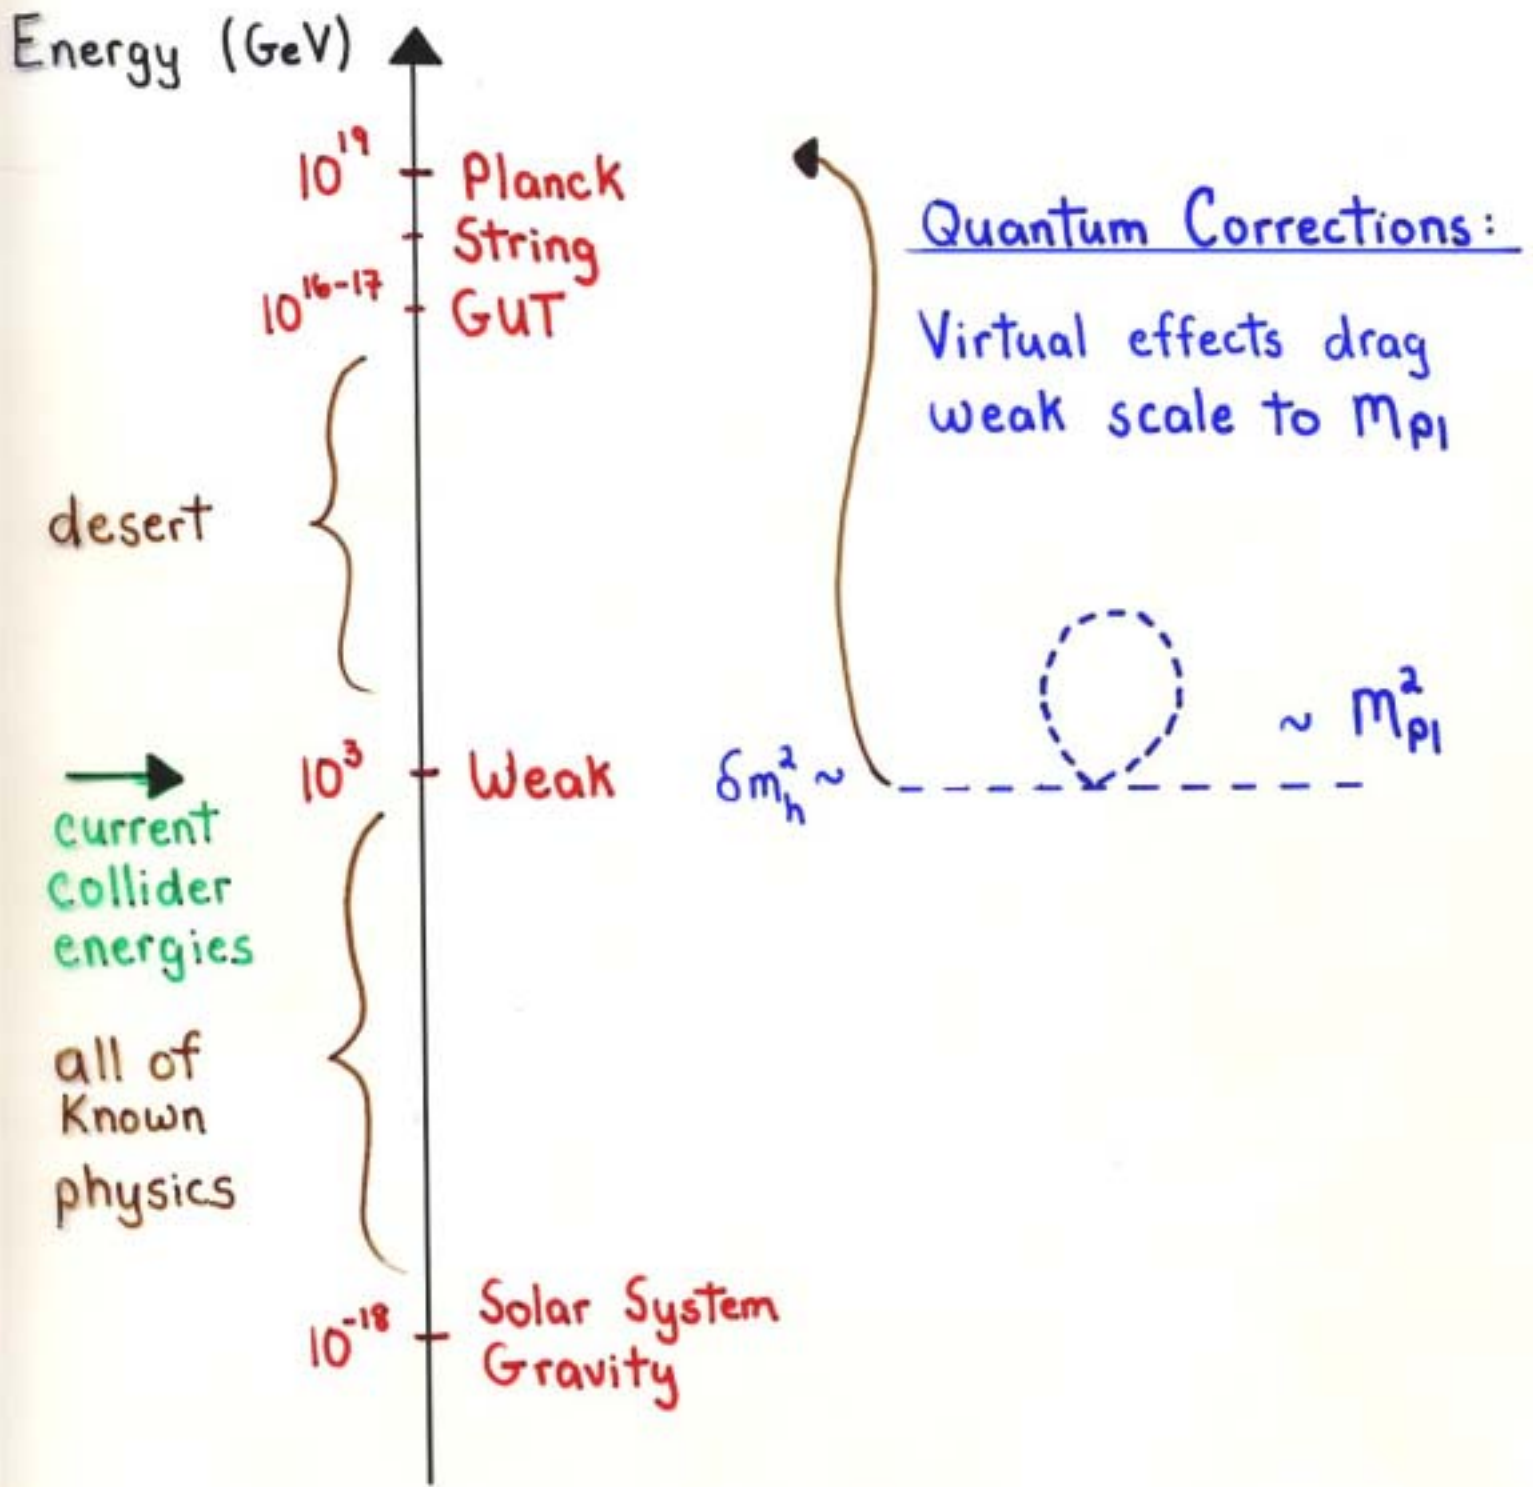 Energy (GeV)
10^19 Planck
String
10^16-17 GUT
desert
10^3 Weak
current
collider
energies
all of
Known
physics
10^-18 Solar System
Gravity
Quantum Corrections:
Virtual effects drag
weak scale to m_Pl
δm_h^2 ~
~ m_Pl^2